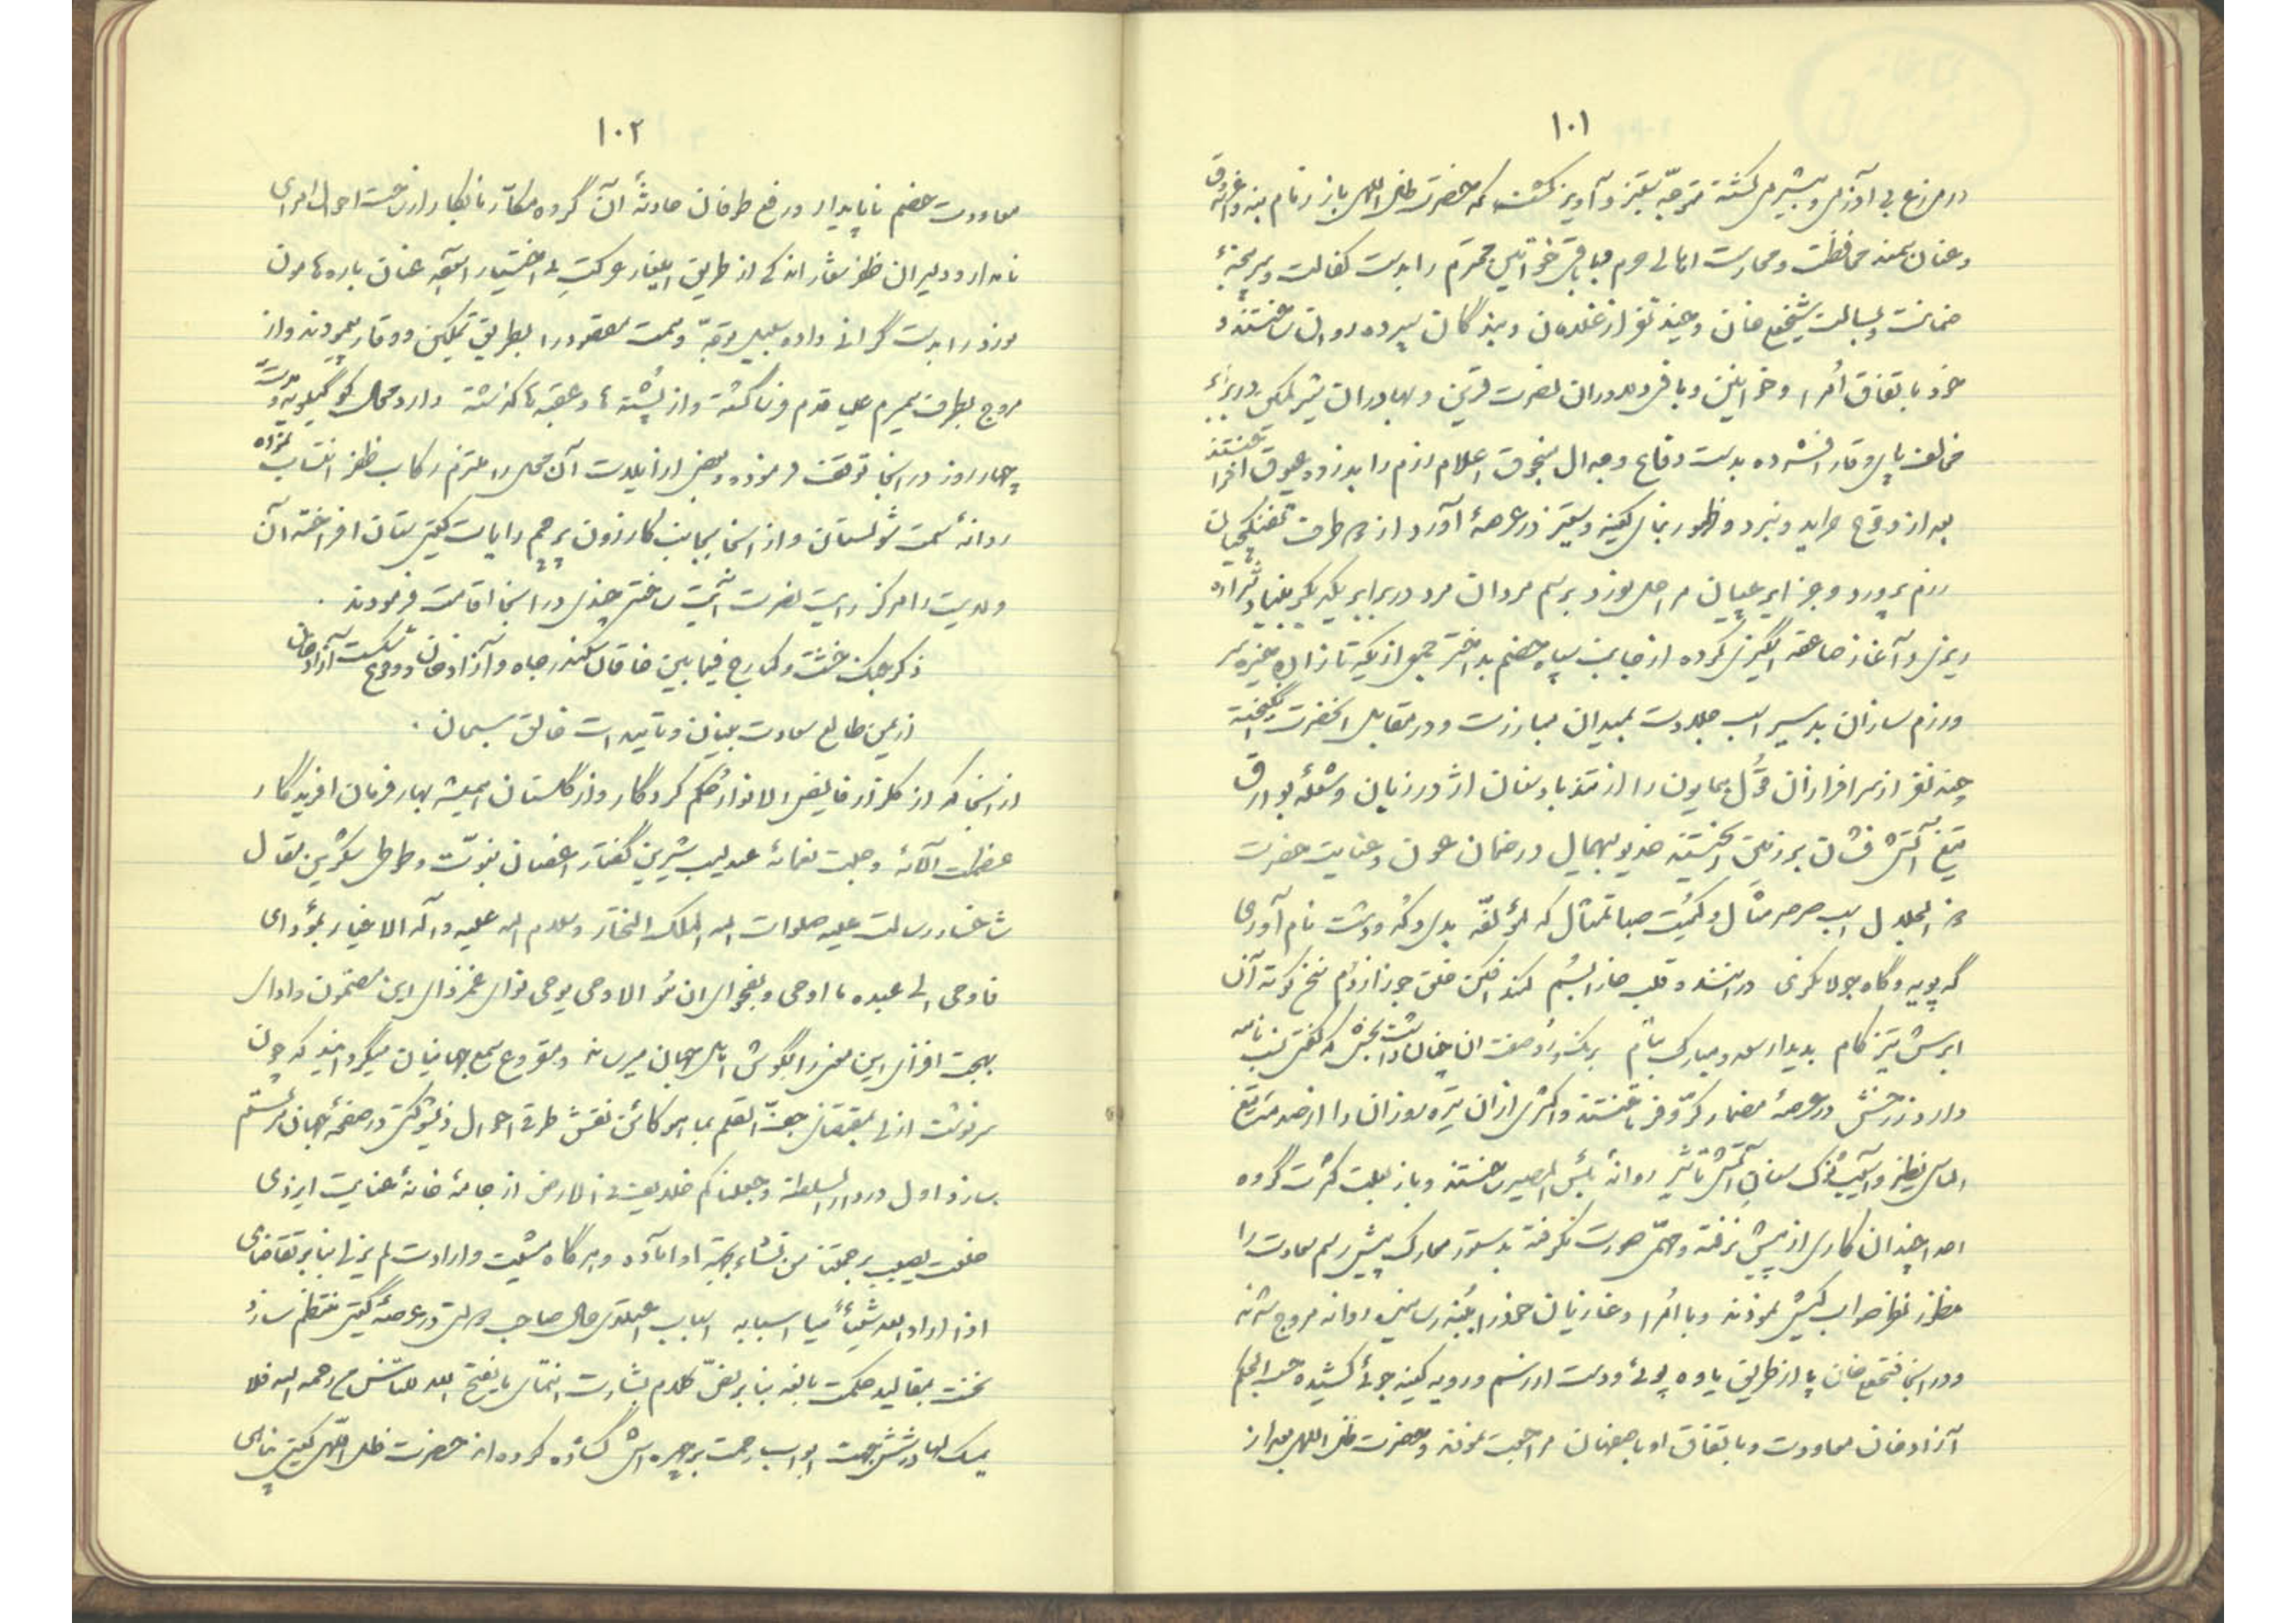 ۱۰۱
در مزرع بی آذرمی و بیشرمی کشته متوجّه ستیز و آویز گشتند که حضرت ظل اللهی باز زمام بنه و اغروق
و عنان سمند محافظت و محارست اهالی حرم مبا باقی خواتین محترم را بدست کفالت و سرپنجهٔ
ضمانت و بسالت شیخعلی خان و چند نفر از غلامان و بندگان سپرده روان ساختند و
خود باتفاق اُمرا و خوانین و باقی دلاوران نصرت قرین و بهادران شیر کمین در برابر
مخالف پای وقار افشرده بدست دفاع و جدال سنجوق اعلام رزم را بدزوه عیوق افراختند
بعد از وقوع حراب و نبرد و ظهور بنای کینه و ستیز در عرصهٔ آورد از هر طرف تفنگچیان
رزم پرورد و جزایرچیان مرحله نورد برسم مردان مرد در برابر یکدیگر بنیاد شراره
ریزی و آغاز صاعقه انگیزی کرده از جانب سپاه خصم بداختر جمعی از یکه تازان خیره سر
و رزم سازان بدسیر اسب جلادت بمیدان مبارزت و در مقابل آنحضرت برانگیخته
چند نفر از سرافرازان قول همایون را از تندباد سنان اژدر زبان و شعلهٔ بوارق
تیغ آتش فشان بر زمین ریختند خدیو بیهمال در ضمان عون و عنایت حضرت
ذو الجلال اسب صرصر مثال و کُمیت صبا تمثال که لمؤلفه بدی کُه و دشت نام آوری
گه پویه و گاه جولانگری درخشنده قلب خارا بسُم کمند افکن خلق جوزا زدُم نخ کوته آن
ابرش تیز گام بدیدار سعد و مبارک بنام
وارد در جنس در عرصهٔ مضمار کرّ و فر تاختند و اکثری از آن تیره روزان را از صدمهٔ تیغ
الماس نظیر و آسیب نوک سنان آتش تأثیر روانهٔ بئس المصیر ساختند و باز بعلت کثرت گروه
اعدا چندان کاری از پیش نرفته و مهمّی صورت نگرفته بدستور معارک پیش رسم سعادت را
منظور نظر صواب کیش نموده و با اُمرا و غازیان خود را ببُنه رسانیده روانه بروج شدند
و در اینجا فتحعلیخان پا از طریق یاوه پوئی و دست از رسم و رویه کینه جوئی کشیده حسب الحکم
آزادخان معاودت و باتفاق او باصفهان مراجعت نموده و حضرت ظل اللهی بعد از
۱۰۲
معاودت خصم ناپایدار و رفع طوفان حادثهٔ آن گروه مکّار نابکار از زحمت احوال امرای
نامدار و دلیران ظفر شعار اندکی از طریق ایلغار و حرکت بی اختیار آسوده عنان باره هامون
نورد را بدست گرانی داده بسبیل توجّه و سمت مقصود را بطریق تمکین و وقار پیمودند و از
بروج بطرف سمیرم علی قدم فرسا گشته و از پُشته ها و عقبه ها گذشته وارد محال کوه گیلویه و مدت
چهار روز در اینجا توقف فرموده و بعضی از ایلات آن محل را ملتزم رکاب ظفر انتساب نموده
روانهٔ سمت شولستان و از آنجا بجانب کازرون پرچم رایات گیتی ستان افراخته آن
ولایت را مرکز رایت نصرت آیت ساخته چندی در اینجا اقامت فرمودند .
ذکر جنگ خشت و کمارج فیمابین خاقان سکندر جاه و آزادخان و وقوع شکست آزادخان
از یمن طالع سعادت بنیان و تأییدات خالق سبحان .
از آنجا که از گلزار فایض الانوار حُکم کردگار و از گلستان همیشه بهار فرمان افریدگار
عظمت آلائه و جلت نعمائه عندلیب شیرین گفتار اغصان نبوّت و طوطی شکّرین مقال
شاخسار رسالت علیه صلوات الله الملک المختار و سلام الله علیه و آله الاخیار بمؤدای
فاوحی الی عبده ما اوحی و بفحوای ان هُو الا وحی یوحی نوای غمزدای این مضمون و ادای
بهجت افزای این معنی را بگوش اهل جهان میرساند و مقروع سمع جهانیان میگرداند که چون
سرنوشت ازلی بمقتضای جفّ القلم بما هو کائن نقش طرقی احوال ذیشوکتی در صفحهٔ جهان مرتسم
سازد اول در دار السلطنهٔ وجعلناکم خلایف فی الارض از جامهٔ خانهٔ عنایت ایزدی
خلعت یصیب برحمتنا من نشاء بجهة او اماده و هر گاه مشیت و ارادت لم یزلی بنا بر تقاضای
اذا اراد الله شیئاً هیأ اسبابه اسباب اعتلای حال صاحب دولتی در عرصهٔ گیتی منتظم سازد
نخست بمقالید حکمت بالغه بنا بر نصّ کلام بشارت انتمای ما یفتح الله للناس من رحمه الله فلا
ممسک لها در شش جهت ابواب رحمت بر چهره اش گشاده کرده اند حضرت ظل اللهی گیتی پناهی